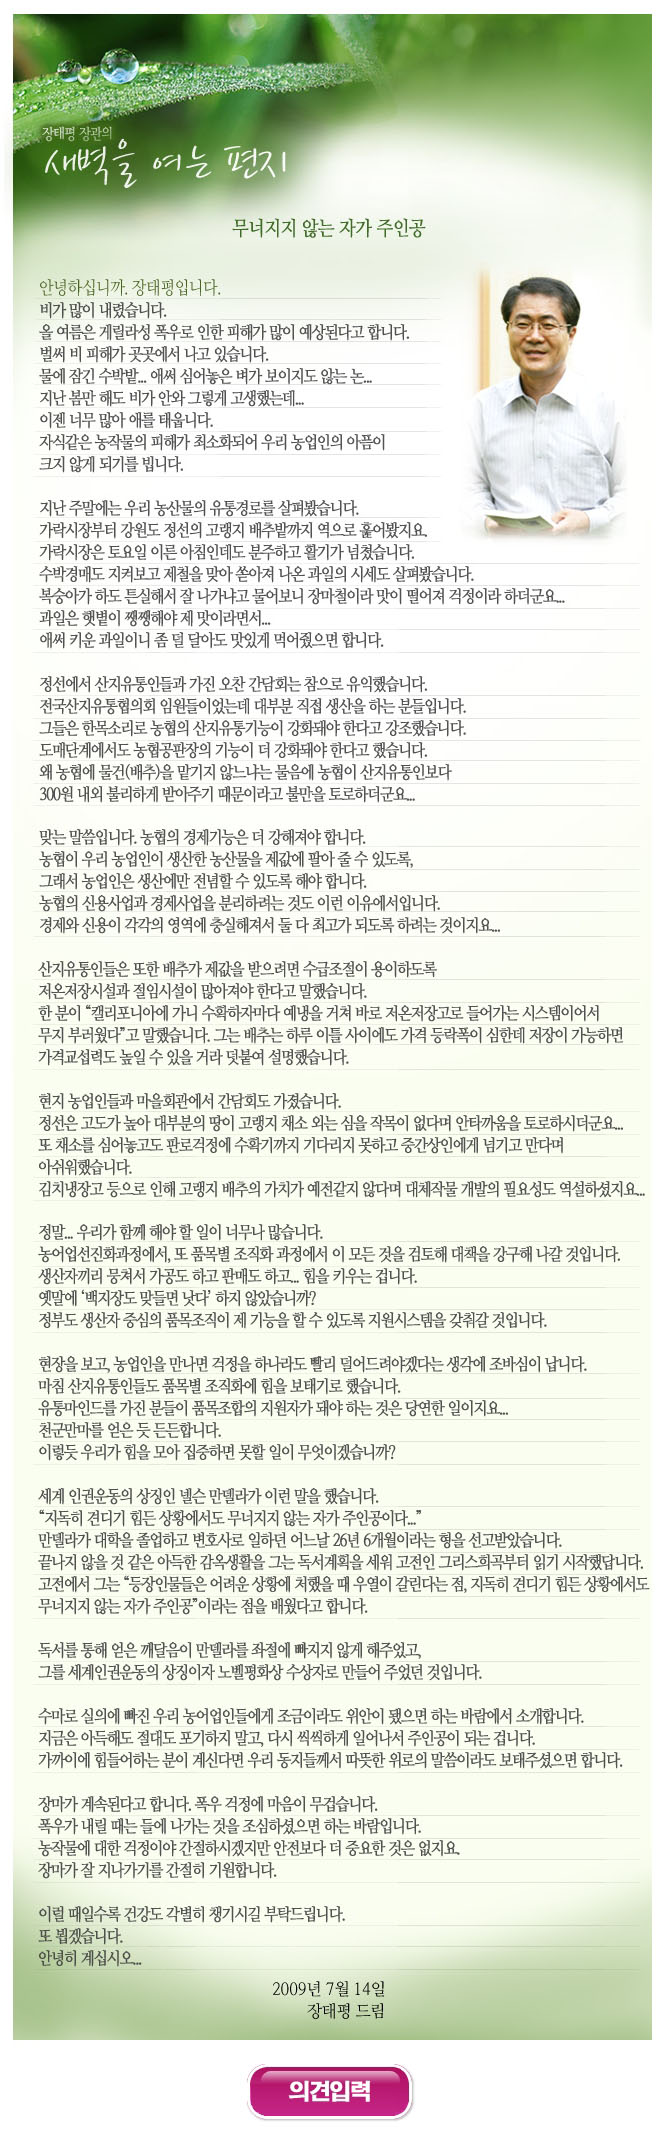 장태평 장관의
새벽을 여는 편지
무너지지 않는 자가 주인공
안녕하십니까. 장태평입니다.
비가 많이 내렸습니다.
올 여름은 게릴라성 폭우로 인한 피해가 많이 예상된다고 합니다.
벌써 비 피해가 곳곳에서 나고 있습니다.
물에 잠긴 수박밭... 애써 심어놓은 벼가 보이지도 않는 논...
지난 봄만 해도 비가 안와 그렇게 고생했는데...
이젠 너무 많아 애를 태웁니다.
자식같은 농작물의 피해가 최소화되어 우리 농업인의 아픔이
크지 않게 되기를 빕니다.
지난 주말에는 우리 농산물의 유통경로를 살펴봤습니다.
가락시장부터 강원도 정선의 고랭지 배추밭까지 역으로 훑어봤지요.
가락시장은 토요일 이른 아침인데도 분주하고 활기가 넘쳤습니다.
수박경매도 지켜보고 제철을 맞아 쏟아져 나온 과일의 시세도 살펴봤습니다.
복숭아가 하도 튼실해서 잘 나가냐고 물어보니 장마철이라 맛이 떨어져 걱정이라 하더군요...
과일은 햇볕이 쨍쨍해야 제 맛이라면서...
애써 키운 과일이니 좀 덜 달아도 맛있게 먹어줬으면 합니다.
정선에서 산지유통인들과 가진 오찬 간담회는 참으로 유익했습니다.
전국산지유통협의회 임원들이었는데 대부분 직접 생산을 하는 분들입니다.
그들은 한목소리로 농협의 산지유통기능이 강화돼야 한다고 강조했습니다.
도매단계에서도 농협공판장의 기능이 더 강화돼야 한다고 했습니다.
왜 농협에 물건(배추)을 맡기지 않느냐는 물음에 농협이 산지유통인보다
300원 내외 불리하게 받아주기 때문이라고 불만을 토로하더군요...
맞는 말씀입니다. 농협의 경제기능은 더 강해져야 합니다.
농협이 우리 농업인이 생산한 농산물을 제값에 팔아 줄 수 있도록,
그래서 농업인은 생산에만 전념할 수 있도록 해야 합니다.
농협의 신용사업과 경제사업을 분리하려는 것도 이런 이유에서입니다.
경제와 신용이 각각의 영역에 충실해져서 둘 다 최고가 되도록 하려는 것이지요...
산지유통인들은 또한 배추가 제값을 받으려면 수급조절이 용이하도록
저온저장시설과 절임시설이 많아져야 한다고 말했습니다.
한 분이 “캘리포니아에 가니 수확하자마다 예냉을 거쳐 바로 저온저장고로 들어가는 시스템이어서
무지 부러웠다”고 말했습니다. 그는 배추는 하루 이틀 사이에도 가격 등락폭이 심한데 저장이 가능하면
가격교섭력도 높일 수 있을 거라 덧붙여 설명했습니다.
현지 농업인들과 마을회관에서 간담회도 가졌습니다.
정선은 고도가 높아 대부분의 땅이 고랭지 채소 외는 심을 작목이 없다며 안타까움을 토로하시더군요...
또 채소를 심어놓고도 판로걱정에 수확기까지 기다리지 못하고 중간상인에게 넘기고 만다며
아쉬워했습니다.
김치냉장고 등으로 인해 고랭지 배추의 가치가 예전같지 않다며 대체작물 개발의 필요성도 역설하셨지요...
정말... 우리가 함께 해야 할 일이 너무나 많습니다.
농어업선진화과정에서, 또 품목별 조직화 과정에서 이 모든 것을 검토해 대책을 강구해 나갈 것입니다.
생산자끼리 뭉쳐서 가공도 하고 판매도 하고... 힘을 키우는 겁니다.
옛말에 ‘백지장도 맞들면 낫다’ 하지 않았습니까?
정부도 생산자 중심의 품목조직이 제 기능을 할 수 있도록 지원시스템을 갖춰갈 것입니다.
현장을 보고, 농업인을 만나면 걱정을 하나라도 빨리 덜어드려야겠다는 생각에 조바심이 납니다.
마침 산지유통인들도 품목별 조직화에 힘을 보태기로 했습니다.
유통마인드를 가진 분들이 품목조합의 지원자가 돼야 하는 것은 당연한 일이지요...
천군만마를 얻은 듯 든든합니다.
이렇듯 우리가 힘을 모아 집중하면 못할 일이 무엇이겠습니까?
세계 인권운동의 상징인 넬슨 만델라가 이런 말을 했습니다.
“지독히 견디기 힘든 상황에서도 무너지지 않는 자가 주인공이다...”
만델라가 대학을 졸업하고 변호사로 일하던 어느날 26년 6개월이라는 형을 선고받았습니다.
끝나지 않을 것 같은 아득한 감옥생활을 그는 독서계획을 세워 고전인 그리스희곡부터 읽기 시작했답니다.
고전에서 그는 “등장인물들은 어려운 상황에 처했을 때 우열이 갈린다는 점, 지독히 견디기 힘든 상황에서도
무너지지 않는 자가 주인공”이라는 점을 배웠다고 합니다.
독서를 통해 얻은 깨달음이 만델라를 좌절에 빠지지 않게 해주었고,
그를 세계인권운동의 상징이자 노벨평화상 수상자로 만들어 주었던 것입니다.
수마로 실의에 빠진 우리 농어업인들에게 조금이라도 위안이 됐으면 하는 바람에서 소개합니다.
지금은 아득해도 절대도 포기하지 말고, 다시 씩씩하게 일어나서 주인공이 되는 겁니다.
가까이에 힘들어하는 분이 계신다면 우리 동지들께서 따뜻한 위로의 말씀이라도 보태주셨으면 합니다.
장마가 계속된다고 합니다. 폭우 걱정에 마음이 무겁습니다.
폭우가 내릴 때는 들에 나가는 것을 조심하셨으면 하는 바람입니다.
농작물에 대한 걱정이야 간절하시겠지만 안전보다 더 중요한 것은 없지요.
장마가 잘 지나가기를 간절히 기원합니다.
이럴 때일수록 건강도 각별히 챙기시길 부탁드립니다.
또 뵙겠습니다.
안녕히 계십시오...
2009년 7월 14일
장태평 드림
의견입력